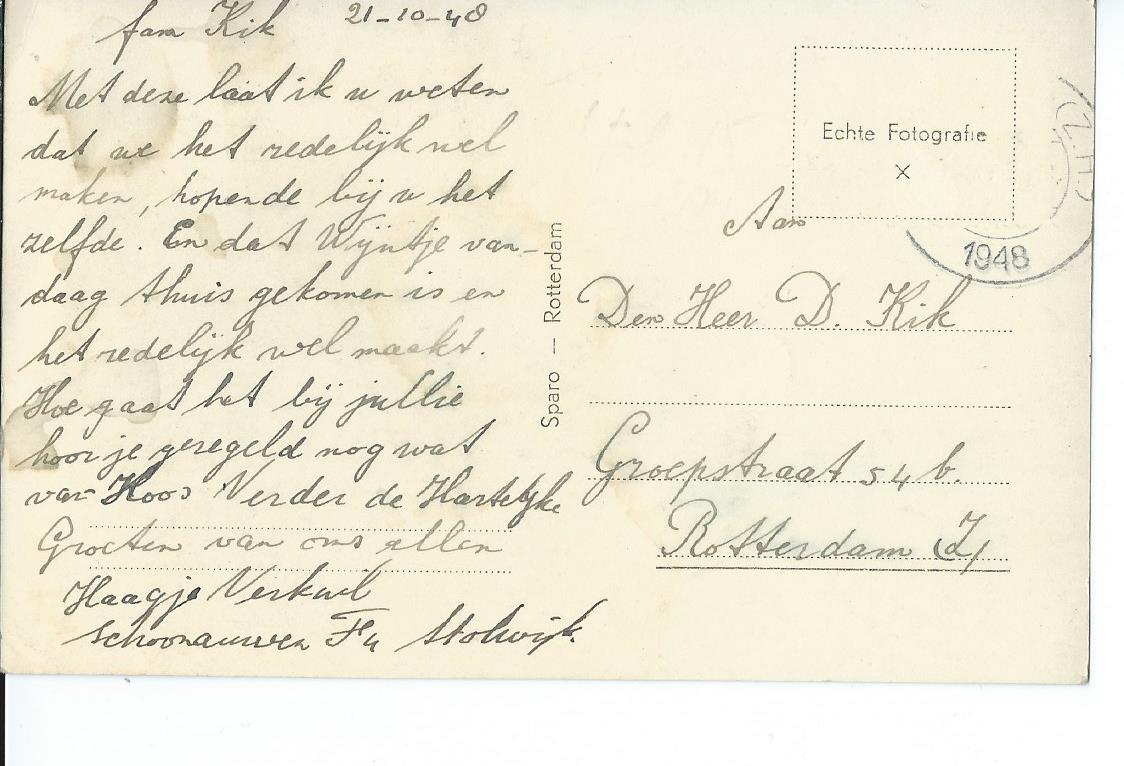 fam Kik 21-10-48
Met deze laat ik u weten
dat we het redelijk wel
maken, hopende bij u het
zelfde. En dat Wijntje van-
daag thuis gekomen is en
het redelijk wel maakt.
Hoe gaat het bij jullie
hoor je geregeld nog wat
van Koos Verder de Hartelijke
Groeten van ons allen
Haagje Verkuil
Schoonauwen F4 Stolwijk
Sparo — Rotterdam
Echte Fotografie
X
(Z.H.)
1948
Aan
Den Heer D. Kik
Groepstraat 54 b.
Rotterdam (Z)